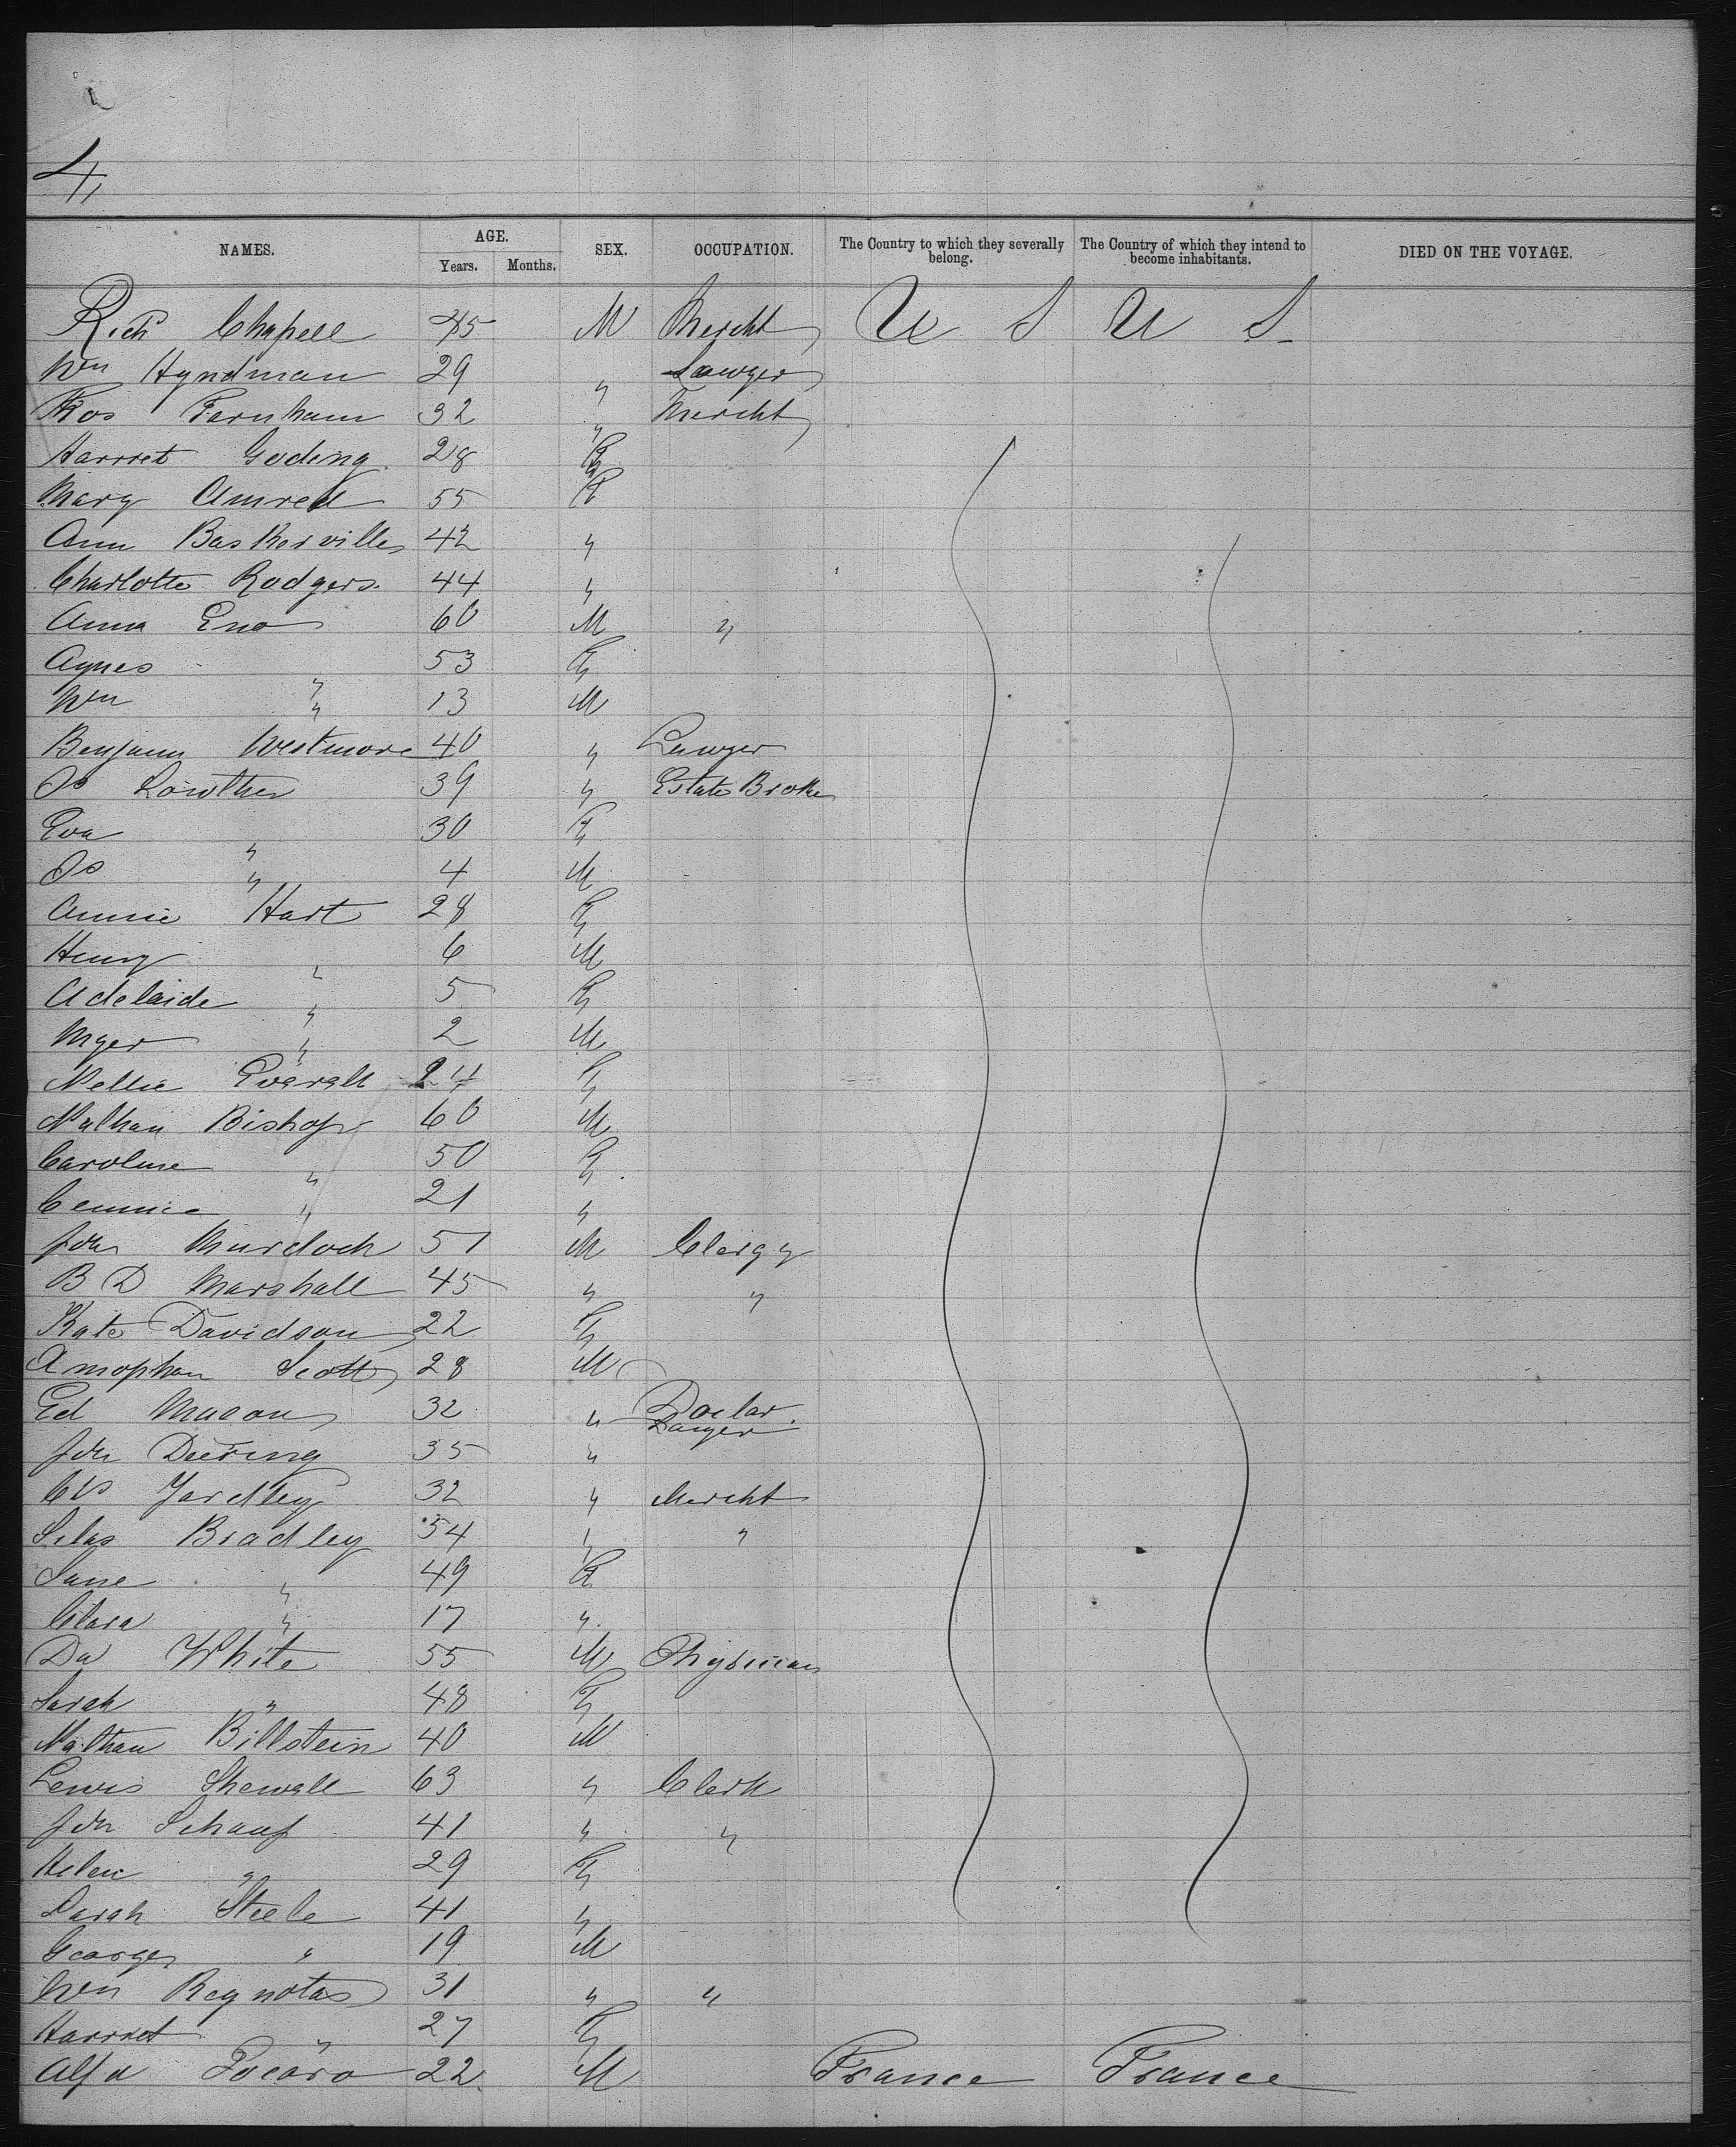 4,
NAMES. AGE. Years. Months. SEX. OCCUPATION. The Country to which they severally belong. The Country of which they intend to become inhabitants. DIED ON THE VOYAGE.
Richd Chapell 45 M Mercht U S U S
Wm Hyndman 29 " Lawyer
Thos Farnham 32 " Mercht
Harriet Goding 28 F
Mary 55 F
Ann Baskerville 42 "
Charlotte Rodgers 44 "
Anna Eno 60 M "
Agnes " 53 F
Wm " 13 M
Benjamn Westmore 40 " Lawyer
Js Lowther 39 " Estate Broke
Eva " 30 F
Js " 4 M
Annie Hart 28 F
Henry " 6 M
Adelaide " 5 F
Myer " 2 M
Nellie 24 F
Nathan Bishop 60 M
Caroline " 50 F
" 21 "
Jon Murdoch 51 M Clergy
B D Marshall 45 " "
Kate Davidson 22 F
Scott 28 M
Ed Macon 32 " Doctor
Lawyer
Jon Deering 35 "
Yardley 32 " Mercht
Silas Bradley 54 " "
Jane " 49 F
Clara " 17 "
Da White 55 M Physician
Sarah " 48 F
Nathan Billstein 40 M
Lewis Shewell 63 " Clerk
Jon Schauf 41 " "
Helen " 29 F
Sarah Steele 41 "
George " 19 M
Wm Reynolds 31 " "
Harriet " 27 F
Alfd 22 M France France